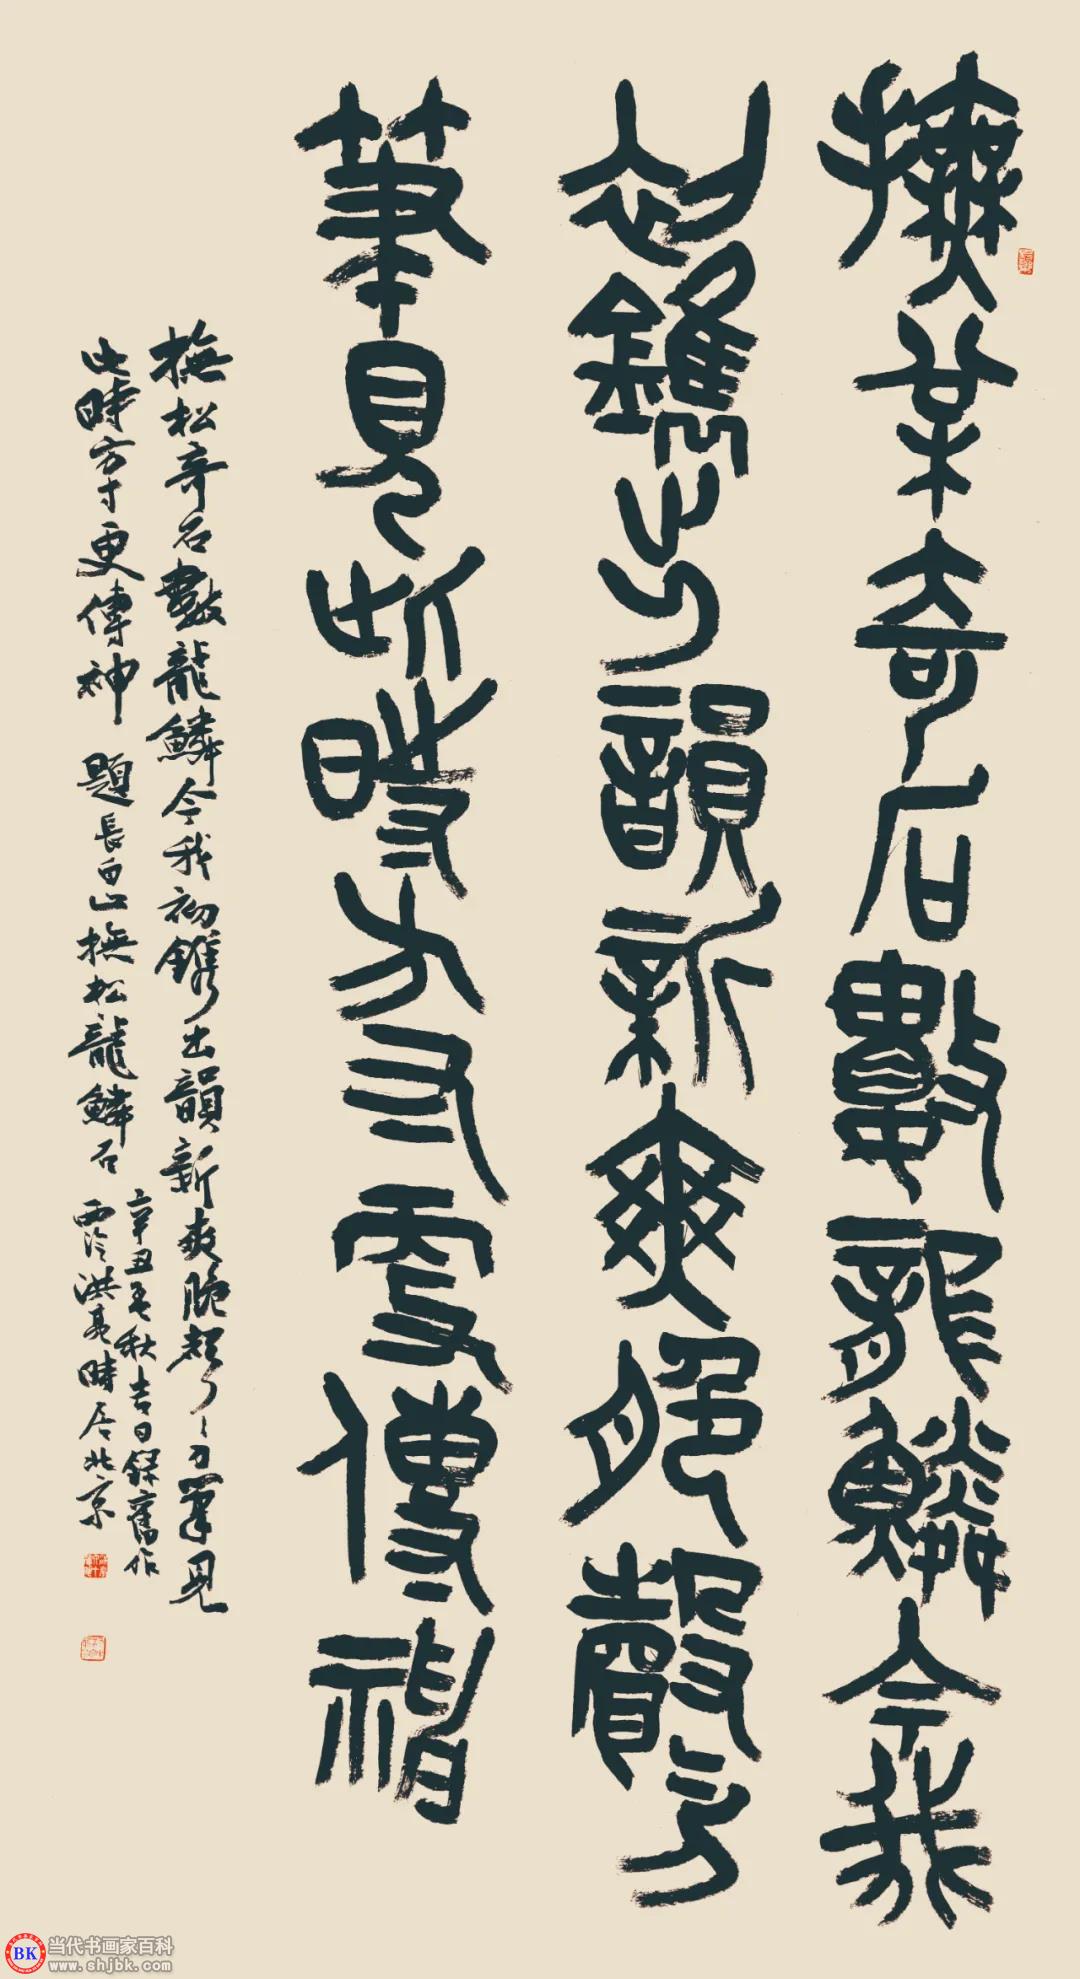 撫松奇石數龍鱗今我
初鐫出韻新爽腕聲〻刀
筆見此時方寸更傳神
撫松奇石數龍鱗今我初鐫出韻新爽腕聲〻刀筆見
此時方寸更傳神 題長白山撫松龍鱗石
辛丑孟秋吉日錄舊作
西泠洪亮時居北京
BK 当代书画家百科
www.shjbk.com